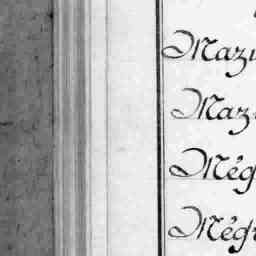 Mazu
Maz
Még
Mégr